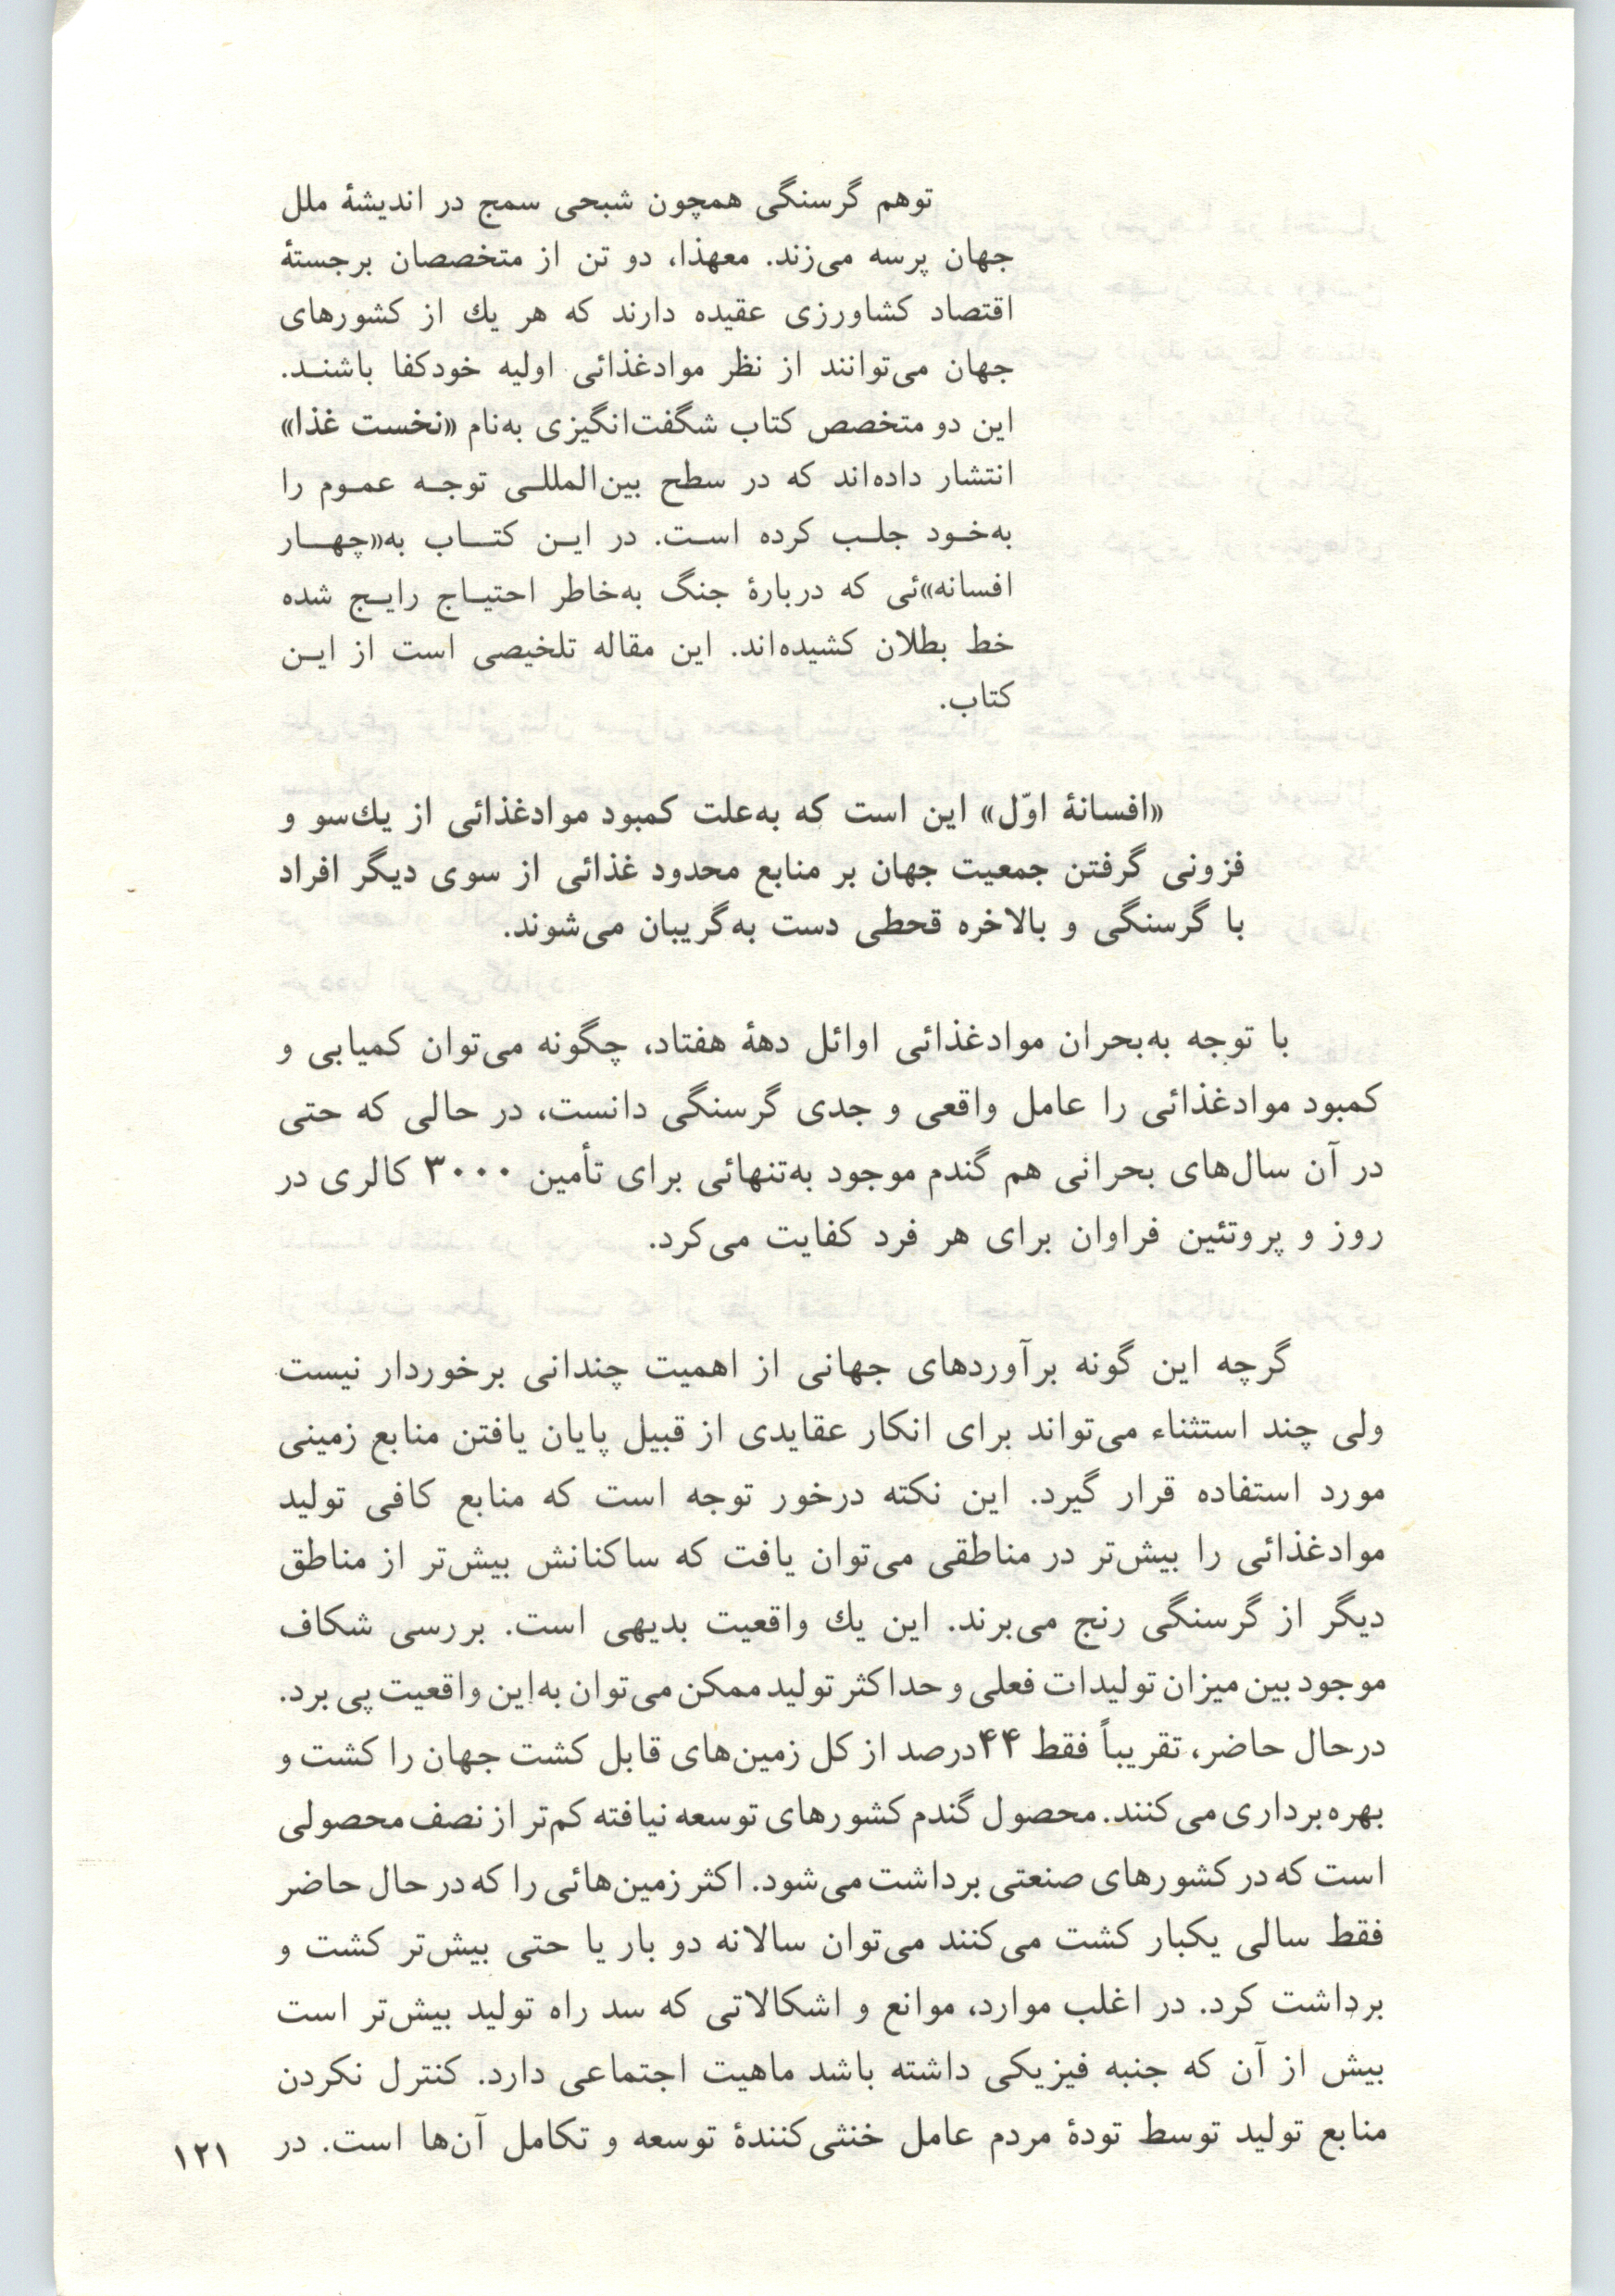 توهم گرسنگی همچون شبحی سمج در اندیشهٔ ملل
جهان پرسه می‌زند. معهذا، دو تن از متخصصان برجستهٔ
اقتصاد کشاورزی عقیده دارند که هر یك از کشورهای
جهان می‌توانند از نظر موادغذائی اولیه خودکفا باشنـد.
این دو متخصص کتاب شگفت‌انگیزی به‌نام «نخست غذا»
انتشار داده‌اند که در سطح بین‌المللـی توجـه عمـوم را
به‌خـود جلـب کرده اسـت. در ایـن کتـاب به«چهـار
افسانه»ئی که دربارهٔ جنگ به‌خاطر احتیـاج رایـج شده
خط بطلان کشیده‌اند. این مقاله تلخیصی است از ایـن
کتاب.
«افسانهٔ اوّل» این است که به‌علت کمبود موادغذائی از یك‌سو و
فزونی گرفتن جمعیت جهان بر منابع محدود غذائی از سوی دیگر افراد
با گرسنگی و بالاخره قحطی دست به‌گریبان می‌شوند.
با توجه به‌بحران موادغذائی اوائل دههٔ هفتاد، چگونه می‌توان کمیابی و
کمبود موادغذائی را عامل واقعی و جدی گرسنگی دانست، در حالی که حتی
در آن سال‌های بحرانی هم گندم موجود به‌تنهائی برای تأمین ۳۰۰۰ کالری در
روز و پروتئین فراوان برای هر فرد کفایت می‌کرد.
گرچه این گونه برآوردهای جهانی از اهمیت چندانی برخوردار نیست
ولی چند استثناء می‌تواند برای انکار عقایدی از قبیل پایان یافتن منابع زمینی
مورد استفاده قرار گیرد. این نکته درخور توجه است که منابع کافی تولید
موادغذائی را بیش‌تر در مناطقی می‌توان یافت که ساکنانش بیش‌تر از مناطق
دیگر از گرسنگی رنج می‌برند. این یك واقعیت بدیهی است. بررسی شکاف
موجود بین میزان تولیدات فعلی و حداکثر تولید ممکن می‌توان به‌این واقعیت پی برد.
درحال حاضر، تقریباً فقط ۴۴درصد از کل زمین‌های قابل کشت جهان را کشت و
بهره‌برداری می‌کنند. محصول گندم کشورهای توسعه نیافته کم‌تر از نصف محصولی
است که در کشورهای صنعتی برداشت می‌شود. اکثر زمین‌هائی را که در حال حاضر
فقط سالی یکبار کشت می‌کنند می‌توان سالانه دو بار یا حتی بیش‌تر کشت و
برداشت کرد. در اغلب موارد، موانع و اشکالاتی که سد راه تولید بیش‌تر است
بیش از آن که جنبه فیزیکی داشته باشد ماهیت اجتماعی دارد. کنترل نکردن
منابع تولید توسط تودهٔ مردم عامل خنثی‌کنندهٔ توسعه و تکامل آن‌ها است. در
۱۲۱